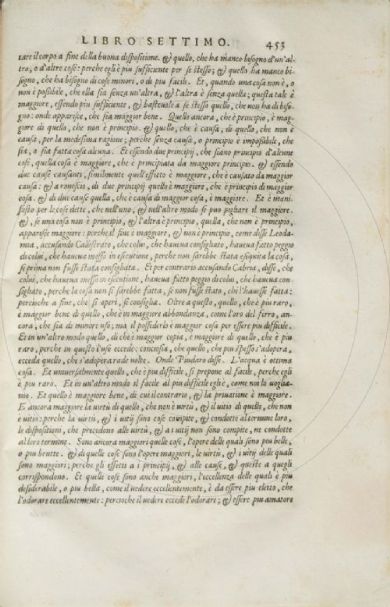 LIBRO SETTIMO. 453
tare il corpo a fine della buona dispositione. & quello, che ha manco bisogno d'un'al-
tro, o d'altre cose: perche egli è piu sufficiente per se stesso; & quello ha manco bi-
sogno, che ha bisogno di cose minori, o di piu facili. Et, quando una cosa non è, o
non è possibile, che ella sia senza un'altra, & l'altra è senza quella; questa tale è
maggiore, essendo piu sufficiente, & bastevole a se stesso quello, che non ha di biso-
gno: onde apparisce, che sia maggior bene. Quello ancora, che è principio, è mag-
giore di quello, che non è principio. & quello, che è causa, di quello, che non è
causa, per la medesima ragione; perche senza causa, o principio è impossibile, che
sia, o sia fatta cosa alcuna. Et essendo due principij, che siano principio d'alcune
cose, quella cosa è maggiore, che è principiata da maggiore principio. & essendo
due cause causanti, similmente quell'effetto è maggiore, che è causato da maggior
causa: & a rovescio, di due principij quello è maggiore, che è principio di maggior
cosa. & di due cause quella, che è causa di maggior cosa, è maggiore. Et è mani-
festo per le cose dette, che nell'uno, & nell'altro modo si può pigliare il maggiore.
&, se una cosa non è principio, & l'altra è principio, quella, che non è principio,
apparisce maggiore: perche il fine è maggiore, & non è principio, come disse Leoda-
mia, accusando Calistrato, che colui, che haueua consigliato, haueua fatto peggio
di colui, che haueua messo in esecutione, perche non sarebbe stata esequita la cosa,
se prima non fusse stata consigliata. Et per contrario accusando Cabria, disse, che
colui, che haueua messo in esecutione, haueua fatto peggio di colui, che haueua con-
sigliato, perche la cosa non si sarebbe fatta, se non fusse stato, chi l'hauesse fatta:
percioche a fine, che si operi, si consiglia. Oltre a questo, quello, che è piu raro,
è maggior bene di quello, che è in maggior abbondanza, come l'oro del ferro, an-
cora, che sia di minore uso, ma il possederlo è maggior cosa per essere piu difficile.
Et in un'altro modo quello, di che è maggior copia, è maggiore di quello, che è piu
raro, perche in questo l'uso eccede; conciosia, che quello, che piu spesso s'adopera,
ecceda quello, che s'adopera rade volte. Onde Pindaro disse. L'acqua è ottima
cosa. Et universalmente quello, che è piu difficile, si prepone al facile, perche egli
è piu raro. Et in un'altro modo il facile al piu difficile: egli è, come noi lo voglia-
mo. Et quello è maggior bene, di cui il contrario, & la privatione è maggiore.
E ancora maggiore la virtù di quello, che non è virtù, & il vitio di quello, che non
è vitio: perche le virtù, & i vitij sono cose compite, & condotte al termine loro,
le dispositioni, che precedono alle virtù, & a i vitij non sono compite, ne condotte
al loro termine. Sono ancora maggiori quelle cose, l'opere delle quali sono piu belle,
o piu brutte. & di quelle cose sono l'opere maggiori, le virtù, & i vitij delle quali
sono maggiori; perche gli effetti a i principij, & alle cause, & queste a quegli
corrispondono. Et quelle cose sono anche maggiori, l'eccellenza delle quali è piu
desiderabile, o piu bella, come il vedere eccellentemente, è da essere piu eletto, che
l'odorare eccellentemente: percioche il vedere eccede l'odorare; & essere piu amatore